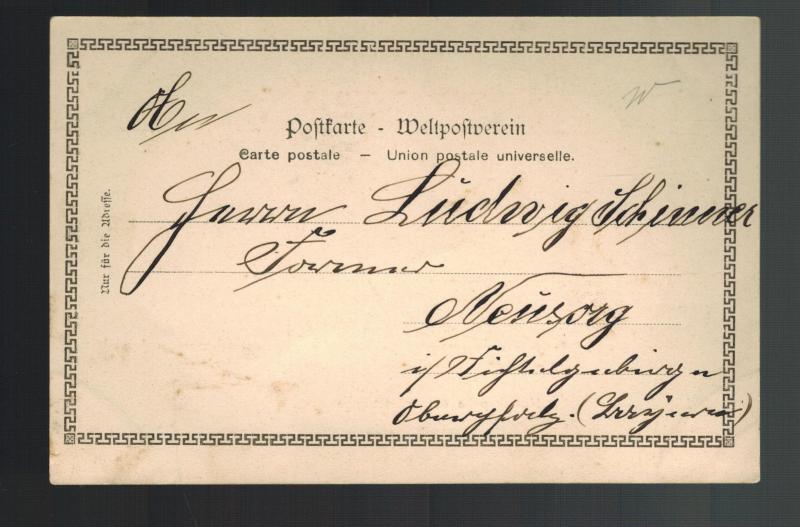 An
w
Postkarte - Weltpostverein
Carte postale — Union postale universelle.
Nur für die Adresse.
Herrn Ludwig Schinner
Former
Neusorg
i/ Fichtelgebirge
Oberpfalz. (Bayern)